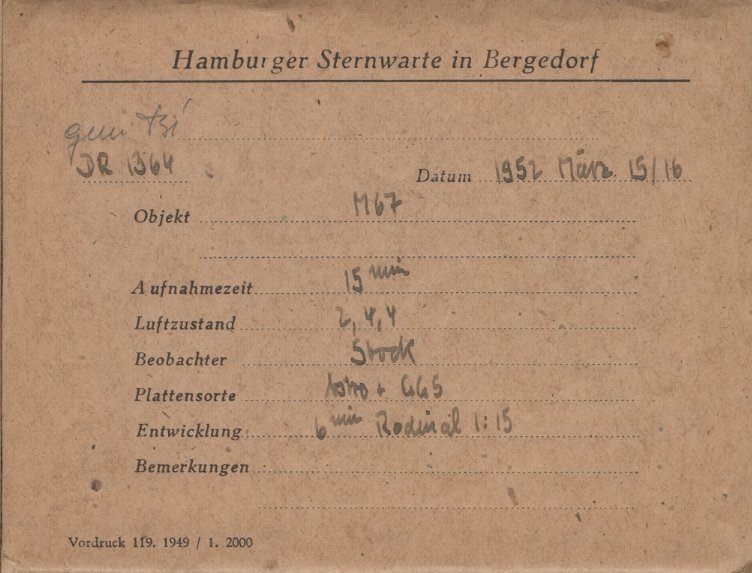 Hamburger Sternwarte in Bergedorf
gem
DR 1364
Datum 1952 März 15/16
Objekt M67
Aufnahmezeit 15 min
Luftzustand 2, 4, 4
Beobachter Stock
Plattensorte + GG5
Entwicklung 6 min Rodinal 1:15
Bemerkungen
Vordruck 119. 1949 / 1. 2000